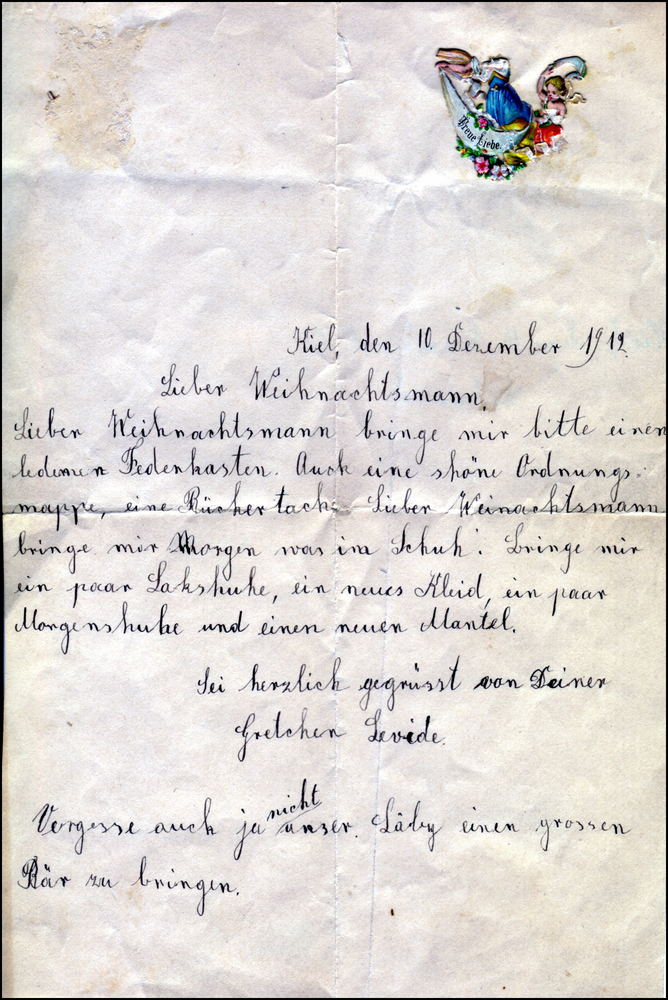 Treue Liebe.
Kiel, den 10. Dezember 1912.
Lieber Weihnachtsmann,
Lieber Weihnachtsmann bringe mir bitte einen
ledernen Federkasten. Auch eine shöne Ordnungs-
mappe, eine Büchertach. Lieber Weinachtsmann
bringe mir Morgen was im Schuh! Bringe mir
ein paar Lakshuhe, ein neues Kleid, ein paar
Morgenshuhe und einen neuen Mantel.
Sei herzlich gegrüsst von Deiner
Gretchen Levide.
nicht
Vergesse auch ja unser Bäby einen grossen
Bär zu bringen.